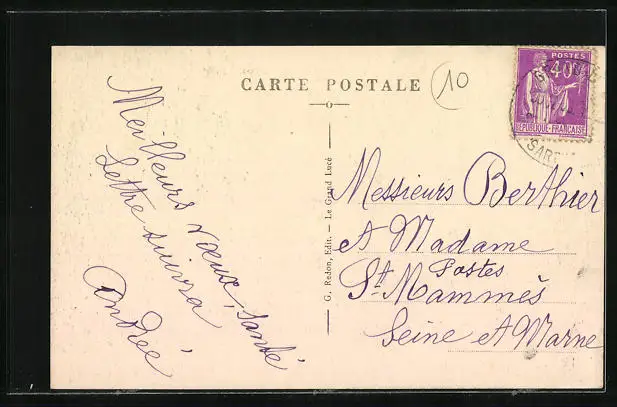 CARTE POSTALE
10
POSTES
40c
RÉPUBLIQUE-FRANÇAISE
SAR
Meilleurs vœux, santé
Lettre suivra
Andrée
G. Redon, Edit. - Le Grand Lucé
Messieurs Berthier
et Madame
Postes
St Mammès
Seine et Marne